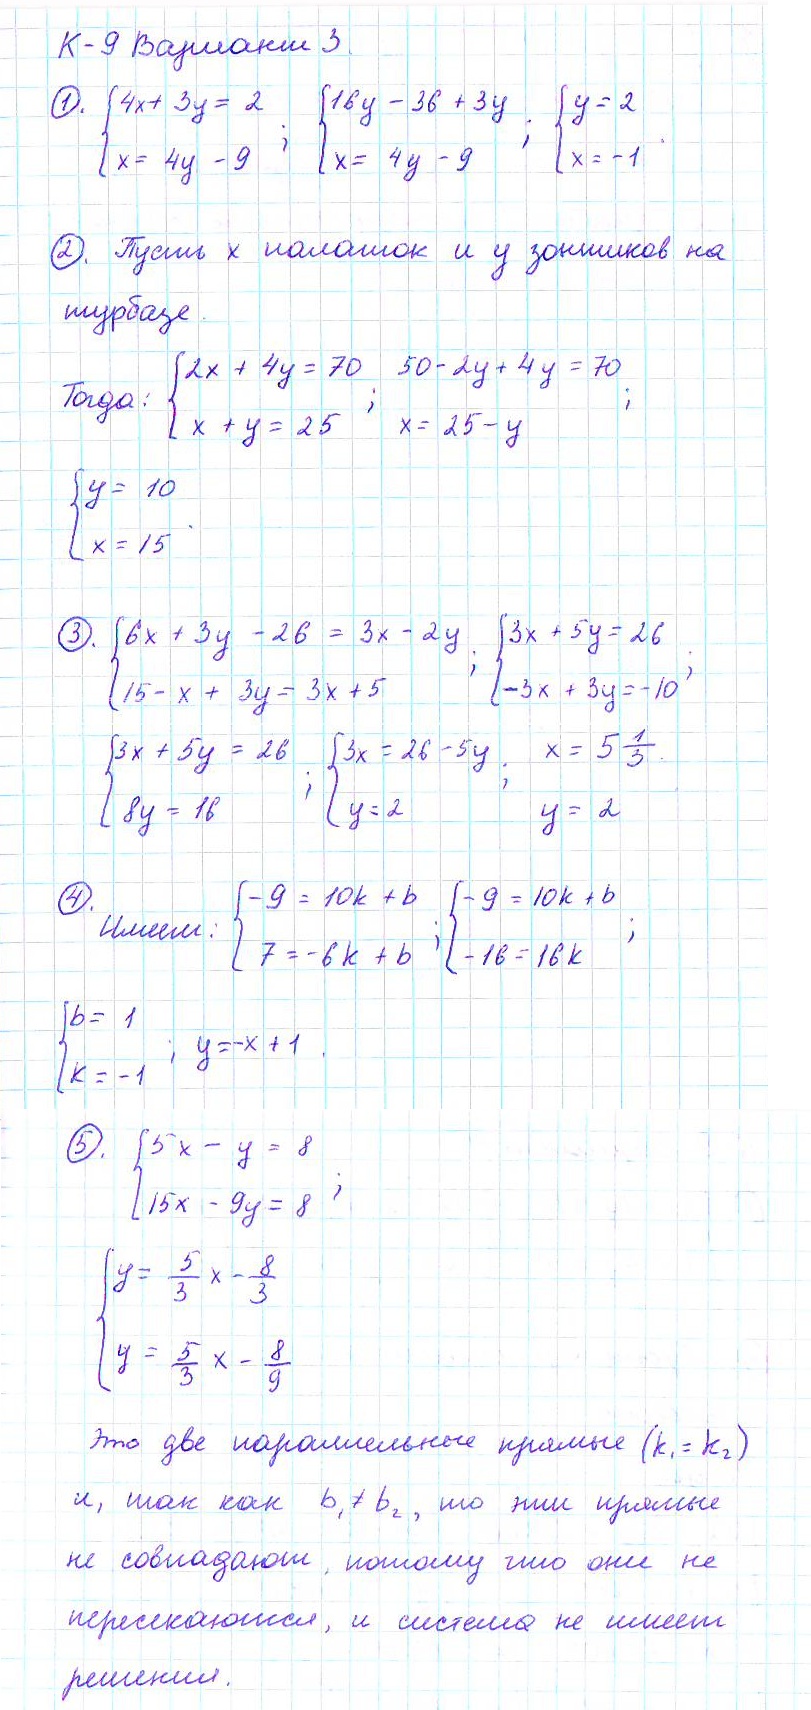 К-9 Вариант 3.
①. {4x + 3y = 2 ; {16y - 36 + 3y ; {y = 2
{x = 4y - 9 {x = 4y - 9 {x = -1.
②. Пусть x палаток и y зонтиков на
турбазе.
Тогда: {2x + 4y = 70 ; 50 - 2y + 4y = 70 ;
{x + y = 25 x = 25 - y
{y = 10
{x = 15.
③. {6x + 3y - 26 = 3x - 2y ; {3x + 5y = 26 ;
{15 - x + 3y = 3x + 5 {-3x + 3y = -10
{3x + 5y = 26 ; {3x = 26 - 5y ; x = 5 1/3.
{8y = 16 {y = 2 y = 2
④. Имеем: {-9 = 10k + b ; {-9 = 10k + b ;
{7 = -6k + b {-16 = 16k
{b = 1 ; y = -x + 1.
{k = -1
⑤. {5x - y = 8 ;
{15x - 9y = 8
{y = 5/3 x - 8/3
{y = 5/3 x - 8/9
Это две параллельные прямые (k₁ = k₂)
и, так как b₁ ≠ b₂, то эти прямые
не совпадают, потому что они не
пересекаются, и система не имеет
решения.